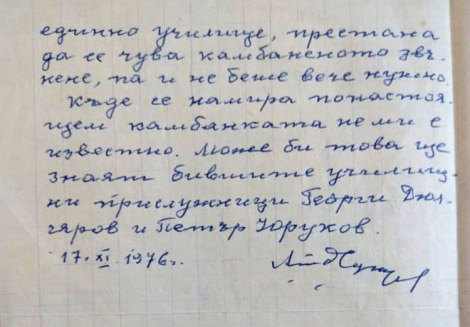 единно училище, престана
да се чува камбаненото звъ-
нене, па и не беше вече нужно.
Къде се намира понастоя-
щем камбанката не ми е
известно. Може би това ще
знаят бившите училищ-
ни прислужници Георги Дюл-
геров и Петър Юруков.
17. XI. 1976 г.